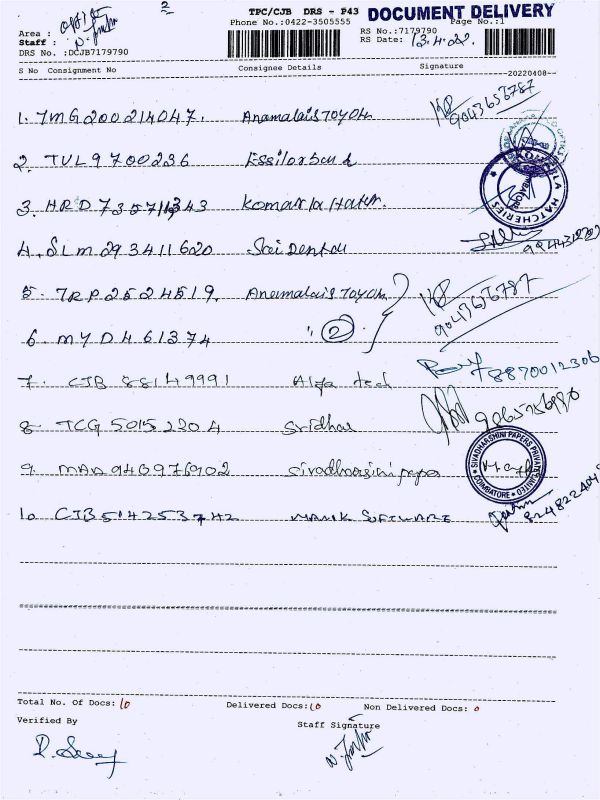 2
TPC/CJB DRS - P43 DOCUMENT DELIVERY
Area :
Phone No.:0422-3505555 Page No.:1
Staff :
RS No.:7179790
DRS No. :DCJB7179790
RS Date: 13.4.22.
S No Consignment No Consignee Details Signature
20220408--
1. 7MG200214047. Anamalais Toyota 9043656787
2. TUL9700236 Essilor
3. HRD Komarla Hatch.
KOMARLA HATCHERIES
4. SLM293411620 Sai Dental
5. TRP2524519. Anamalais Toyota 9043656787
6. MYD461374 " 2
7. CJB 88149991 Alfa tech 8870012306
8 TCG 50152204 Sridhar
9. MAA940976902 Sivadharsini paper
SIVADHARSHINI PAPERS PRIVATE LIMITED COIMBATORE
10 CJB514253742 MAMK SOFTWARE
Total No. Of Docs: 10 Delivered Docs: 10 Non Delivered Docs: 0
Verified By Staff Signature